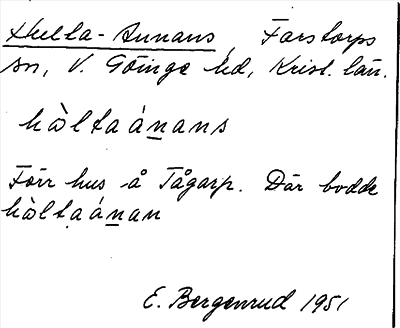 Hulta-Annans, Farstorps
sn, V. Göinge hd, Krist. län.
hὼltaánans
Förr hus å Tågarp. Där bodde
hὼltaánan
E. Bergenrud 1951